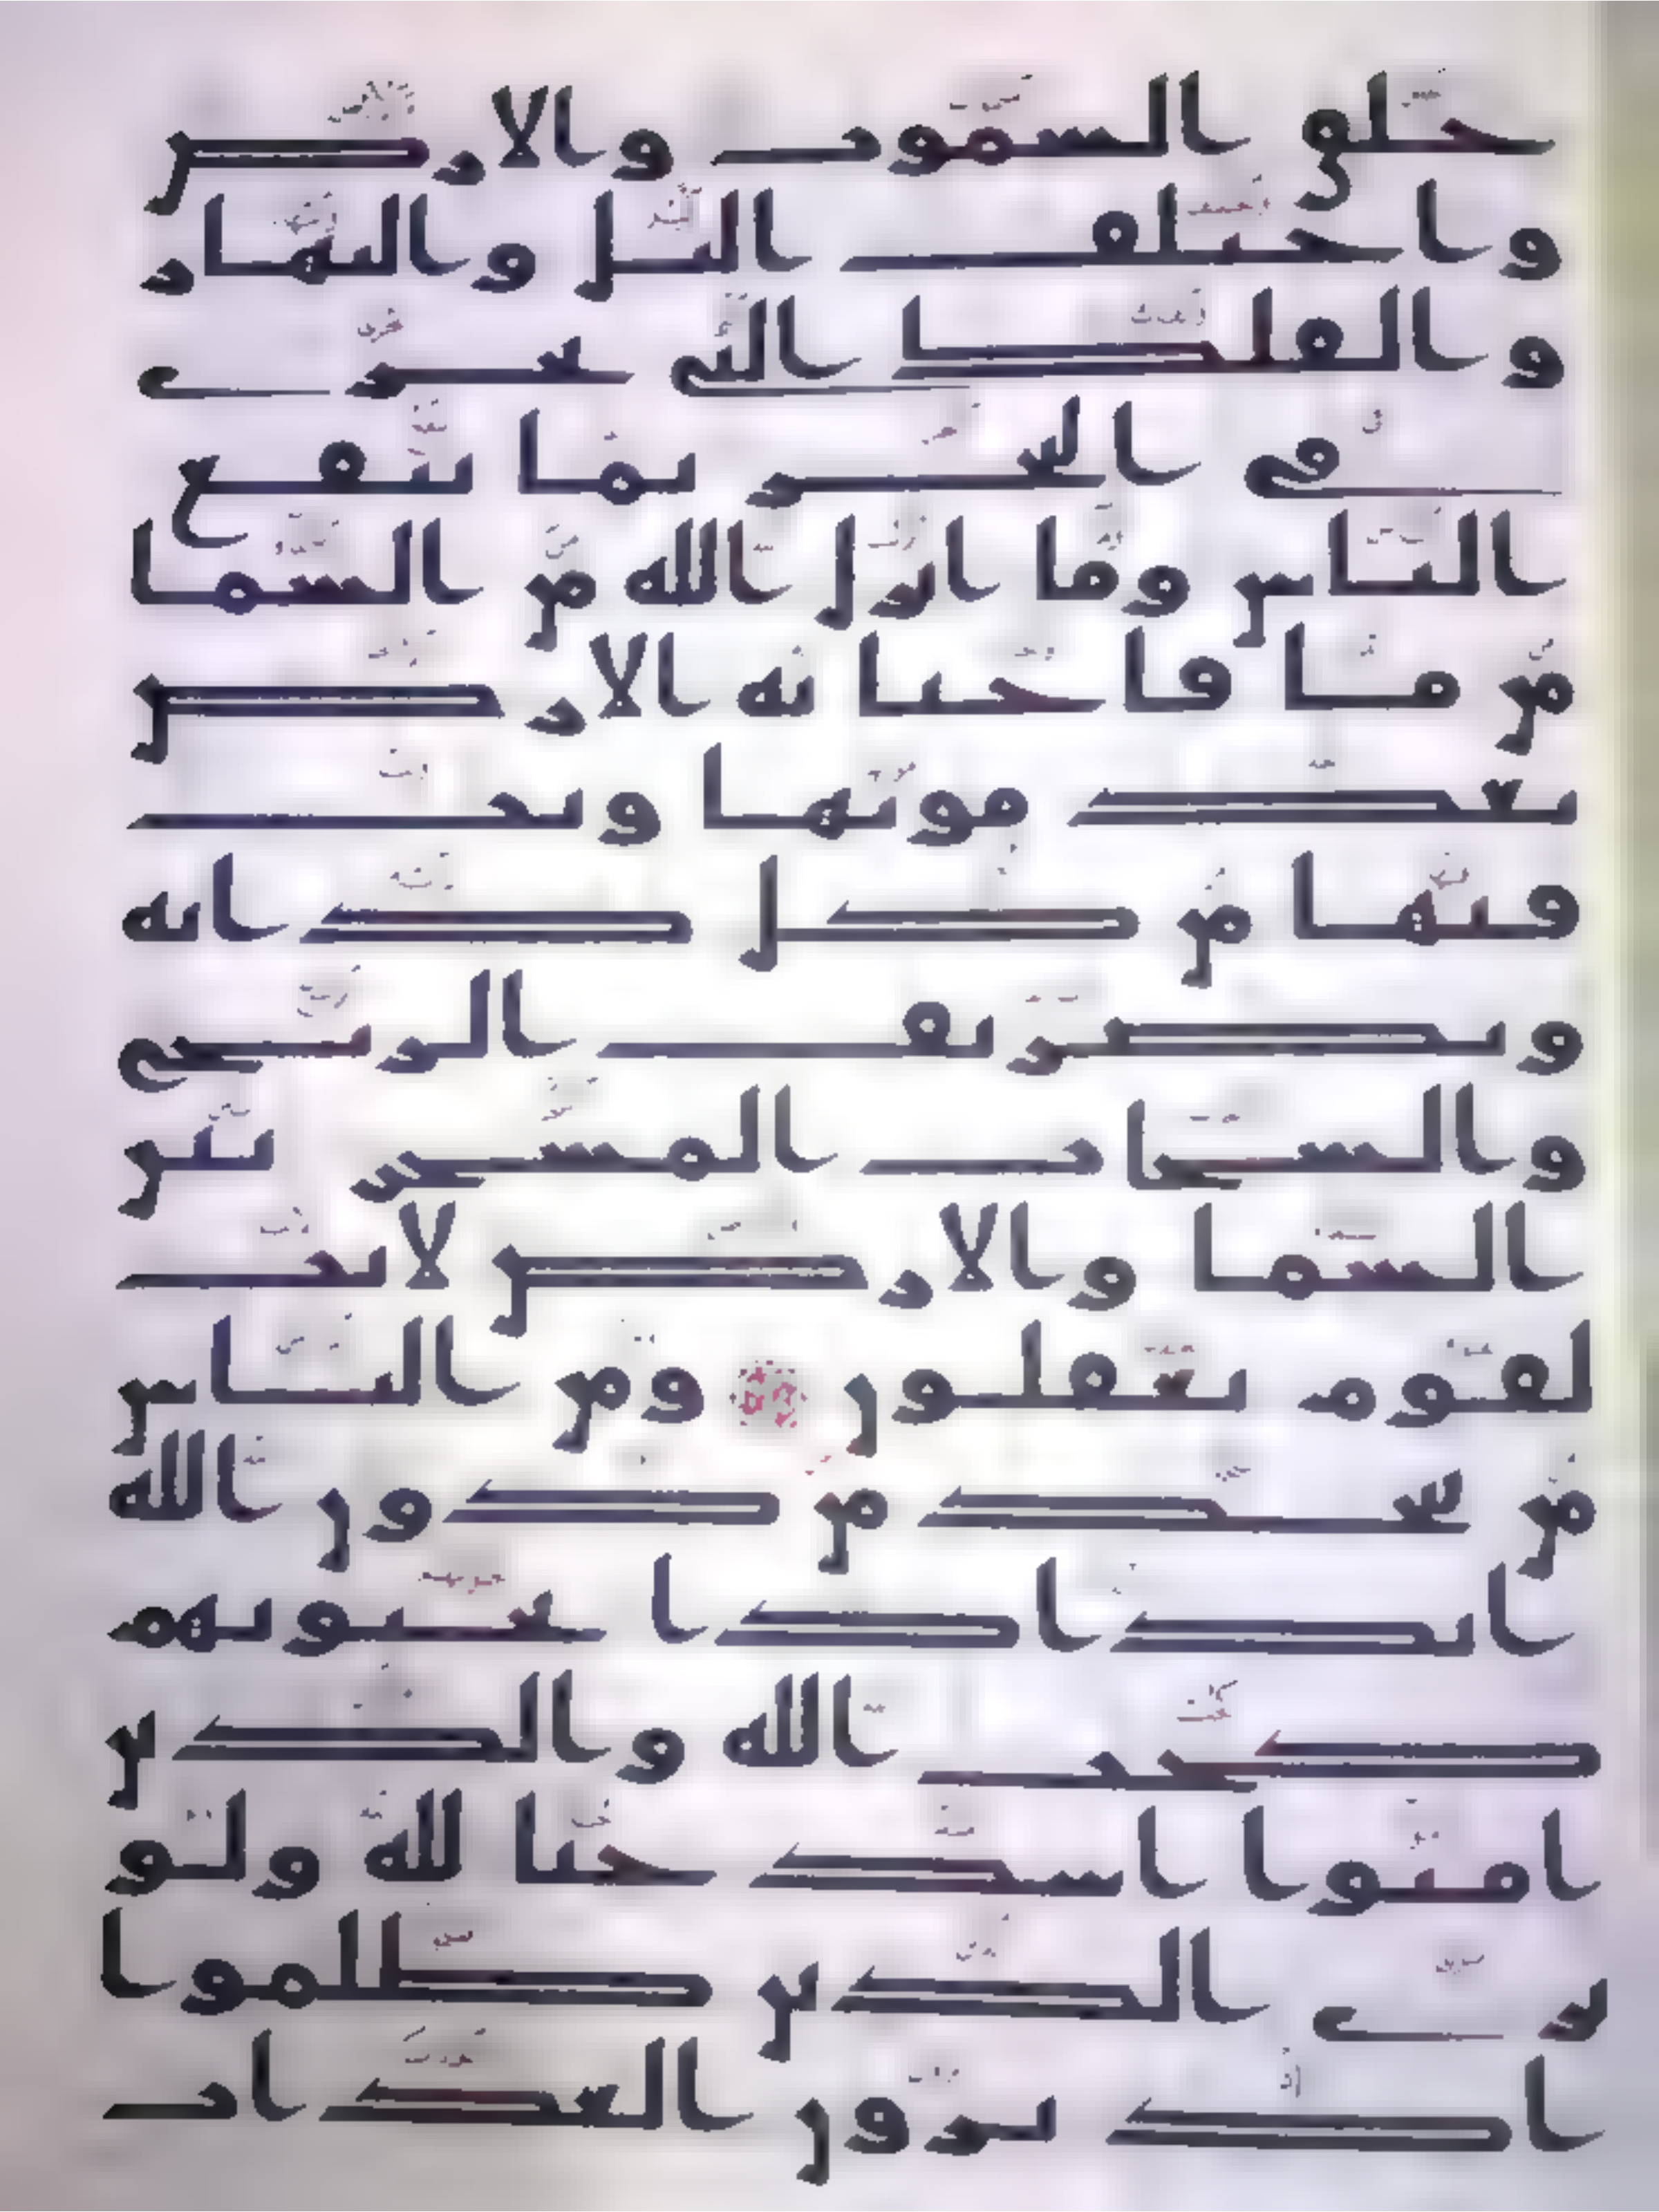 خلق السموت والارض
واختلف اليل والنهار
والفلك التي تجري
في البحر بما ينفع
الناس وما انزل الله من السما
من ما فاحيا به الارض
بعد موتها وبث
فيها من كل دابه
وتصريف الريح
والسحاب المسخر بين
السما والارض لايت
لقوم يعقلون ومن الناس
من يتخذ من دون الله
اندادا يحبونهم
كحب الله والذين
امنوا اشد حبا لله ولو
يرى الذين ظلموا
اذ يرون العذاب